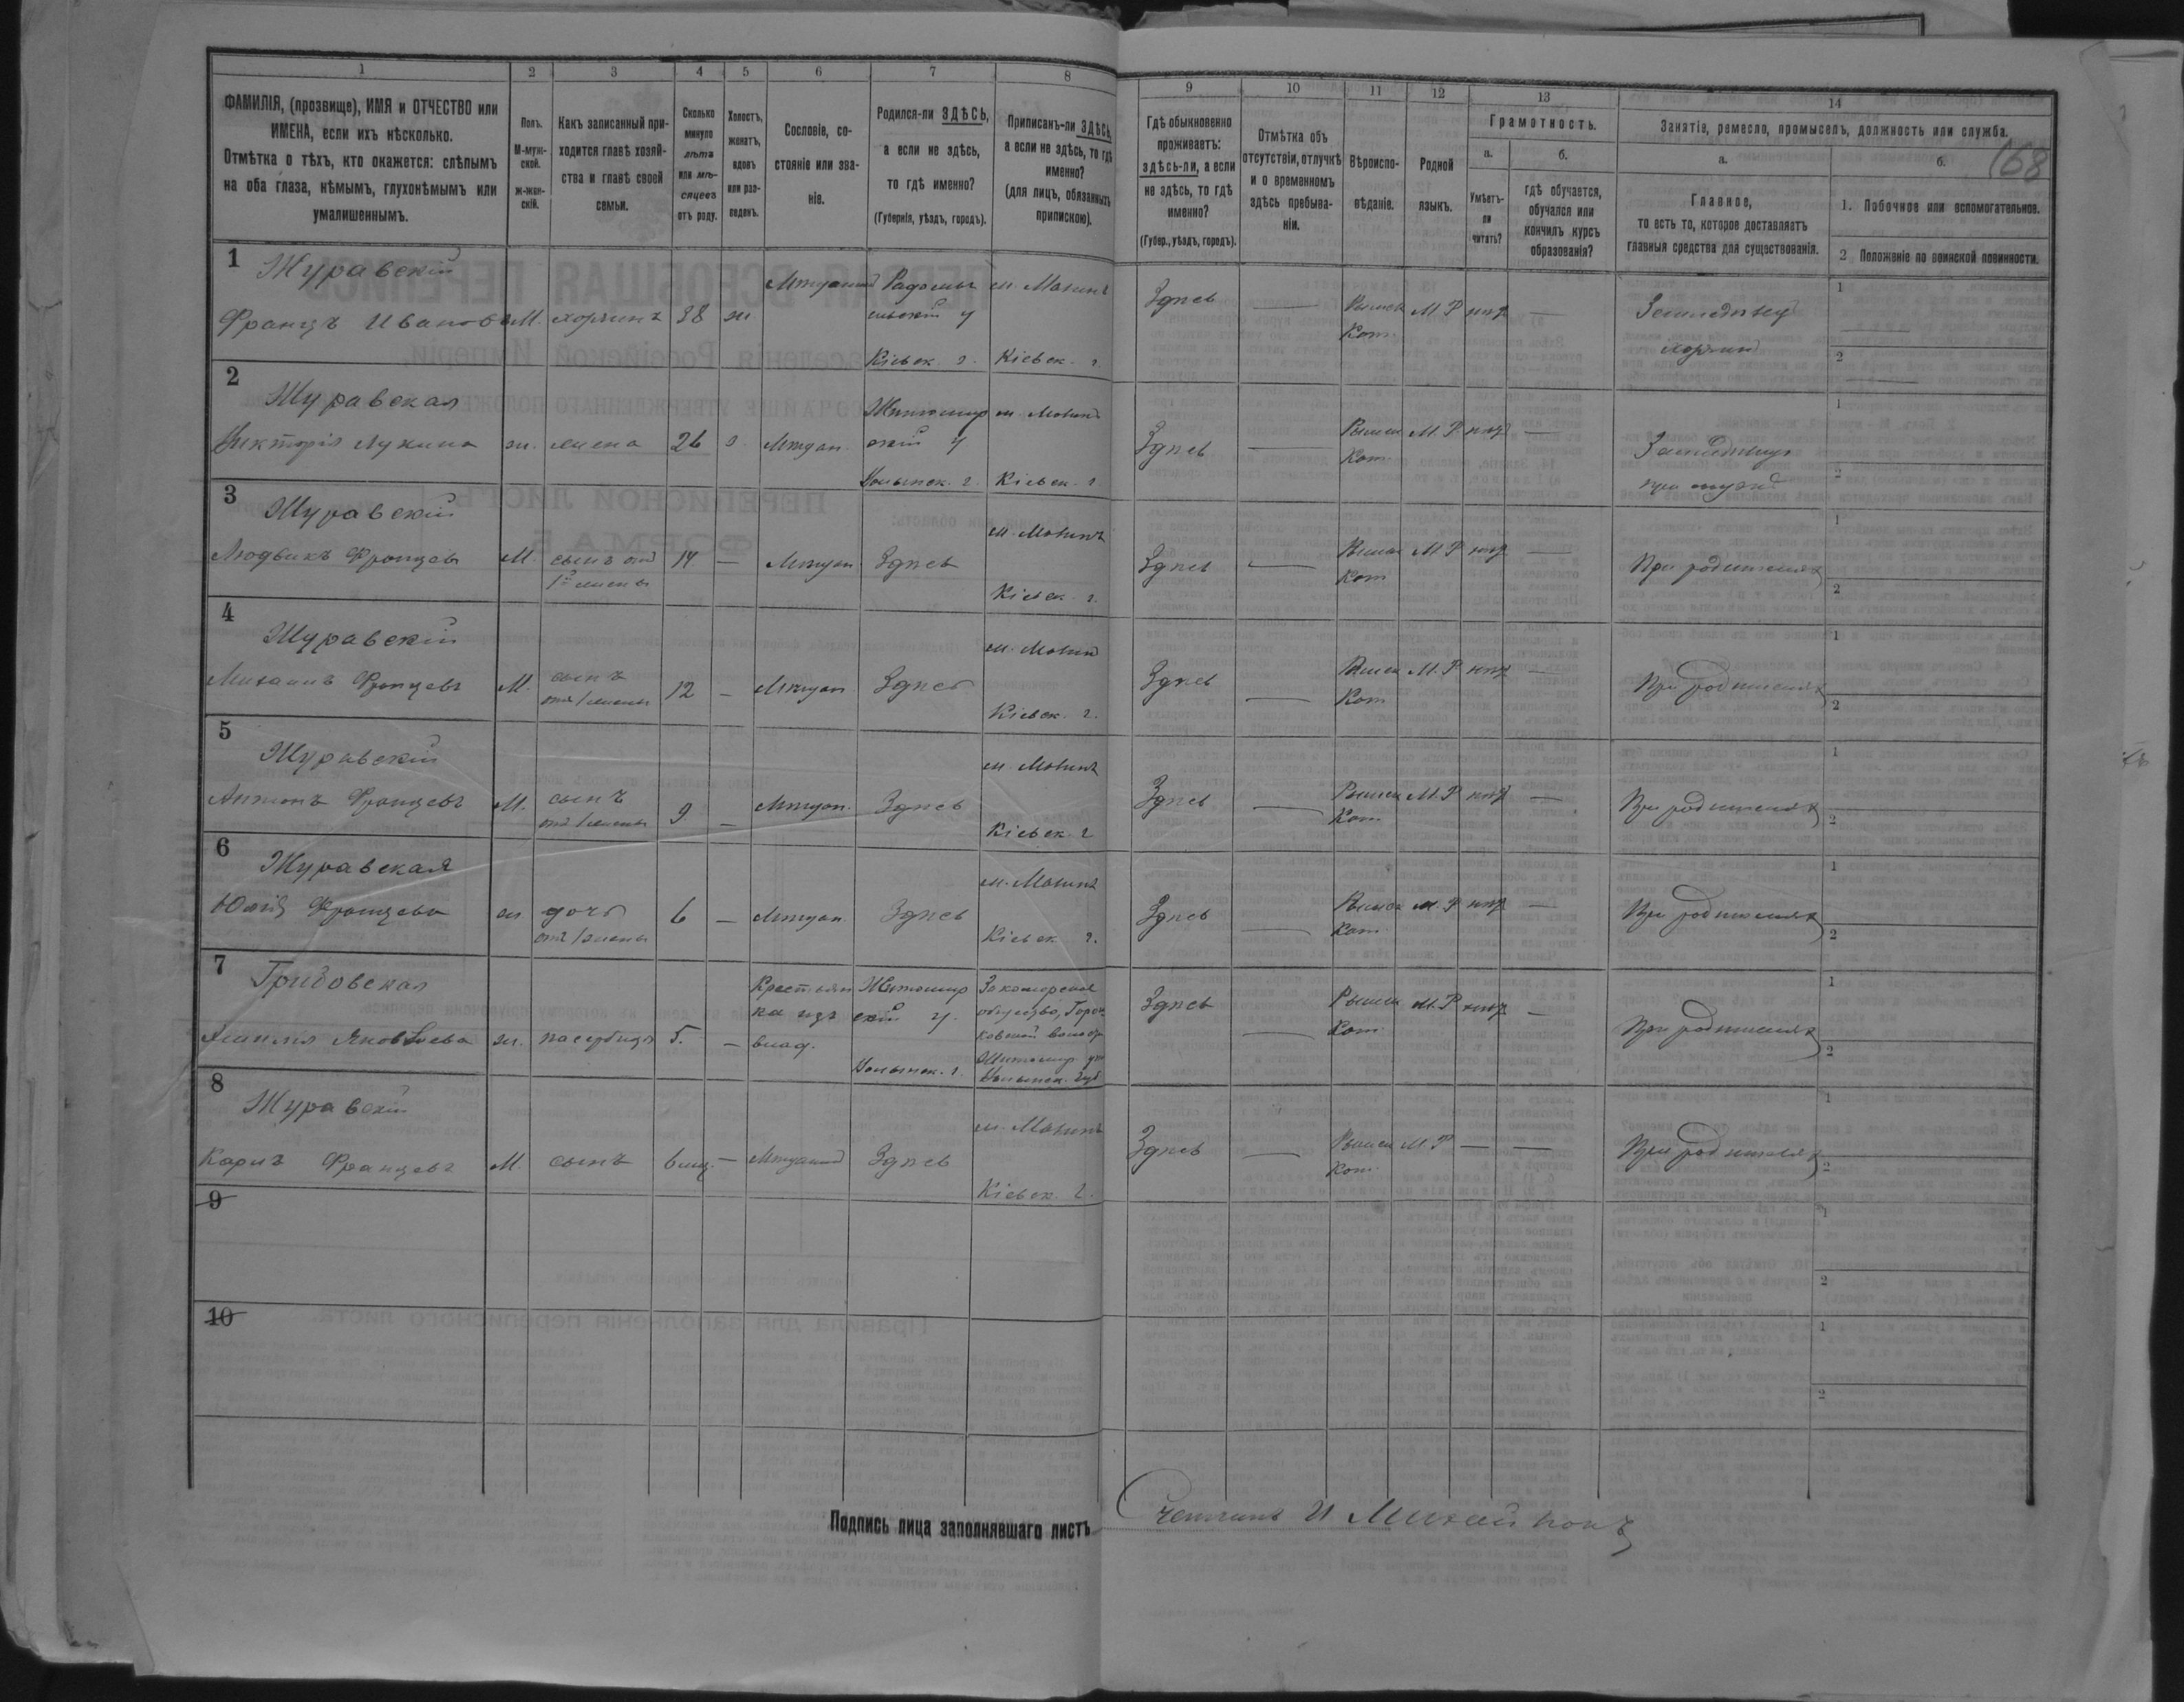 168
1 2 3 4 5 6 7 8 9 10 11 12 13 14
ФАМИЛІЯ, (прозвище), ИМЯ и ОТЧЕСТВО или
ИМЕНА, если ихъ нѣсколько.
Отмѣтка о тѣхъ, кто окажется: слѣпымъ
на оба глаза, нѣмымъ, глухонѣмымъ или
умалишеннымъ.
Полъ.
М-муж-
ской.
ж-жен-
скій.
Какъ записанный при-
ходится главѣ хозяй-
ства и главѣ своей
семьи.
Сколько
минуло
лѣтъ
или мѣ-
сяцевъ
отъ роду.
Холостъ,
женатъ,
вдовъ
или раз-
веденъ.
Сословіе, со-
стояніе или зва-
ніе.
Родился-ли ЗДѢСЬ,
а если не здѣсь,
то гдѣ именно?
(Губернія, уѣздъ, городъ).
Приписанъ-ли ЗДѢСЬ,
а если не здѣсь, то гдѣ
именно?
(для лицъ, обязанныхъ
припискою).
Гдѣ обыкновенно
проживаетъ:
здѣсь-ли, а если
не здѣсь, то гдѣ
именно?
(Губер., уѣздъ, городъ).
Отмѣтка объ
отсутствіи, отлучкѣ
и о временномъ
здѣсь пребыва-
ніи.
Вѣроиспо-
вѣданіе.
Родной
языкъ.
Грамотность.
а.
Умѣетъ-
ли
читать?
б.
гдѣ обучается,
обучался или
кончилъ курсъ
образованія?
Занятіе, ремесло, промыселъ, должность или служба.
а.
Главное,
то есть то, которое доставляетъ
главныя средства для существованія.
б.
1. Побочное или вспомогательное.
2 Положеніе по воинской повинности.
1
Журавскій Мѣщанинъ Радомы м. Малинъ Здѣсь — Римск М.Р нѣтъ — Земледѣлец 1
Францъ Иванов М. хозяинъ 38 ж сльскій у Кат. хозяинъ
Кіевск. г. Кіевск. г. 2
2
Журавская Житомир м. Малинъ Здѣсь — Римск М.Р нѣтъ — 1
Викторія Лукина ж. жена 26 з. Мѣщан. скій у Кат. при мужѣ 2
Волынск. г. Кіевск. г
3
Журавскій м. Малинъ Здѣсь — Римск М.Р нѣтъ — При родителях 1
Людвикъ Францев М. сынъ от 14 — Мѣщан Здѣсь Кат
1й жены Кіевск. г. 2
4
Журавскій м. Малин Здѣсь — Римск М.Р нѣтъ — При родителях 1
Михаилъ Францевъ М. сынъ 12 — Мѣщан Здѣсь Кат
отъ 1 жены Кіевск. г. 2
5
Журавскій м. Малинъ Здѣсь — Римск М.Р нѣтъ — При родителях 1
Антонъ Францевъ М. сынъ 9 — Мѣщан. Здѣсь Кат
отъ 1 жены Кіевск. г 2
6
Журавская м. Малинъ Здѣсь — Римск М.Р нѣтъ — При родителях 1
Юлія Францева ж дочь 6 — Мѣщан Здѣсь Кат.
отъ 1 жены Кіевск г. 2
7
Крестьян Житомир Здѣсь — Римск М.Р нѣтъ — При родителях 1
ка изъ скій у. общество, Горош
Яковлева ж. пасербица 5. — влад. ковской волост Кат.
Волынск. г. Житомир. у
Волынск. губ 2
8
Журавскій м. Малинъ Здѣсь — Римск М.Р — — При родителях 1
Карлъ Францевъ М. сынъ 6 мѣц. — Мѣщанин Здѣсь Кат.
Кіевск. г. 2
9 1
2
10 1
2
Подпись лица заполнявшаго листъ Счетчикъ И